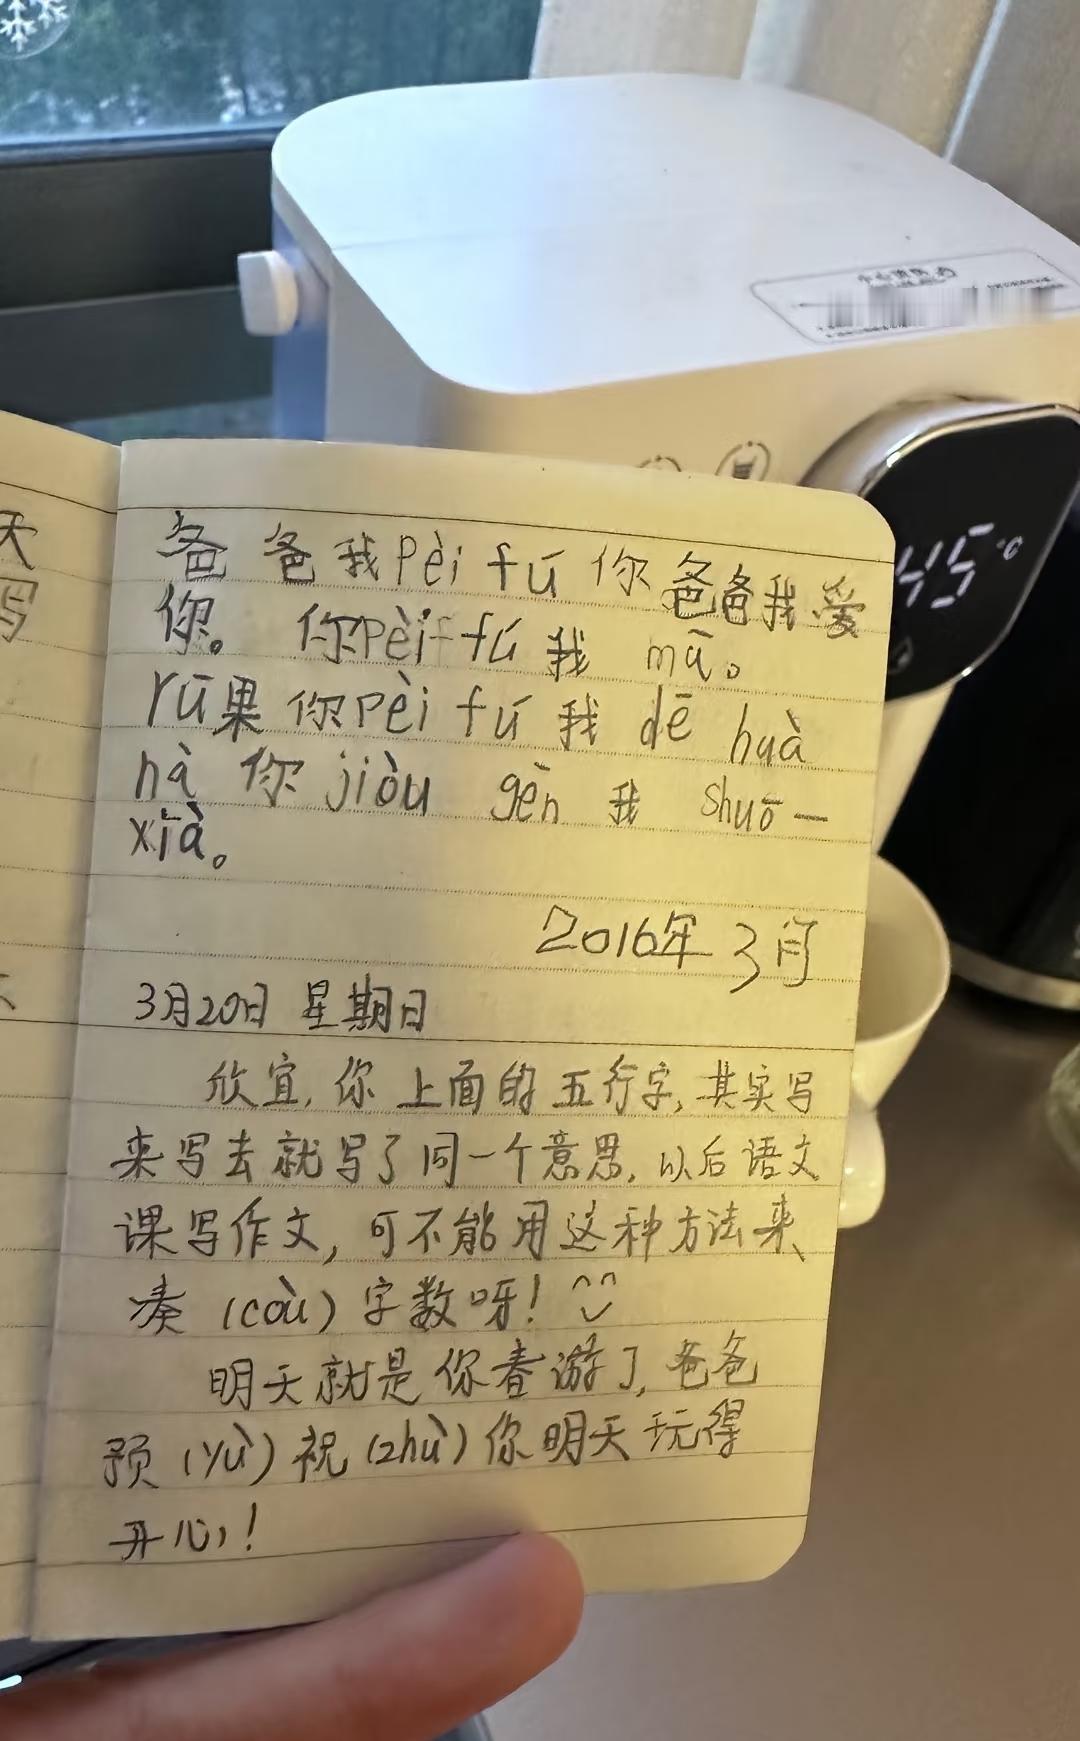 天
写
45°c
爸爸我Pèi fú你爸爸我爱
你。你Pèi fú我 mā。
rú果你Pèi fú我 dē huà
nà 你 jiòu gēn 我 shuō一
xià。
2016年3月
3月20日 星期日
欣宜,你上面的五行字,其实写
来写去就写了同一个意思,以后语文
课写作文,可不能用这种方法来
凑(còu)字数呀!
明天就是你春游了,爸爸
预(yù)祝(zhù)你明天玩得
开心!